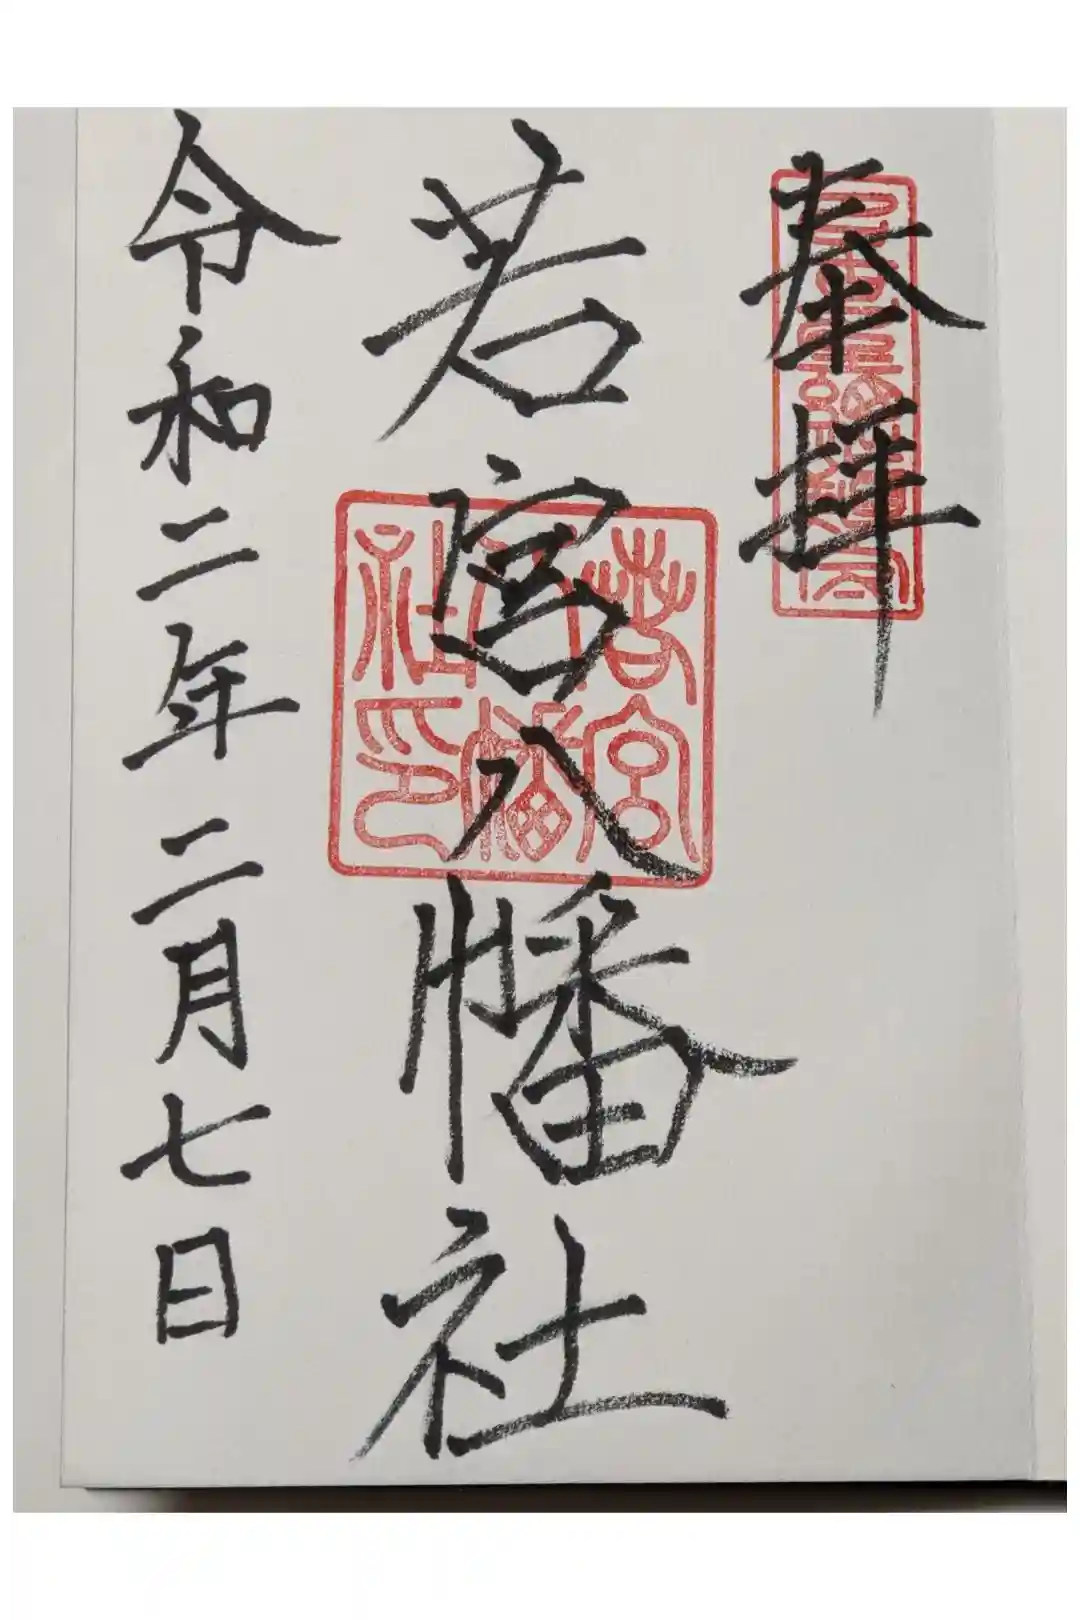 奉拝
若宮八幡社
令和二年二月七日
若宮
八幡
社印